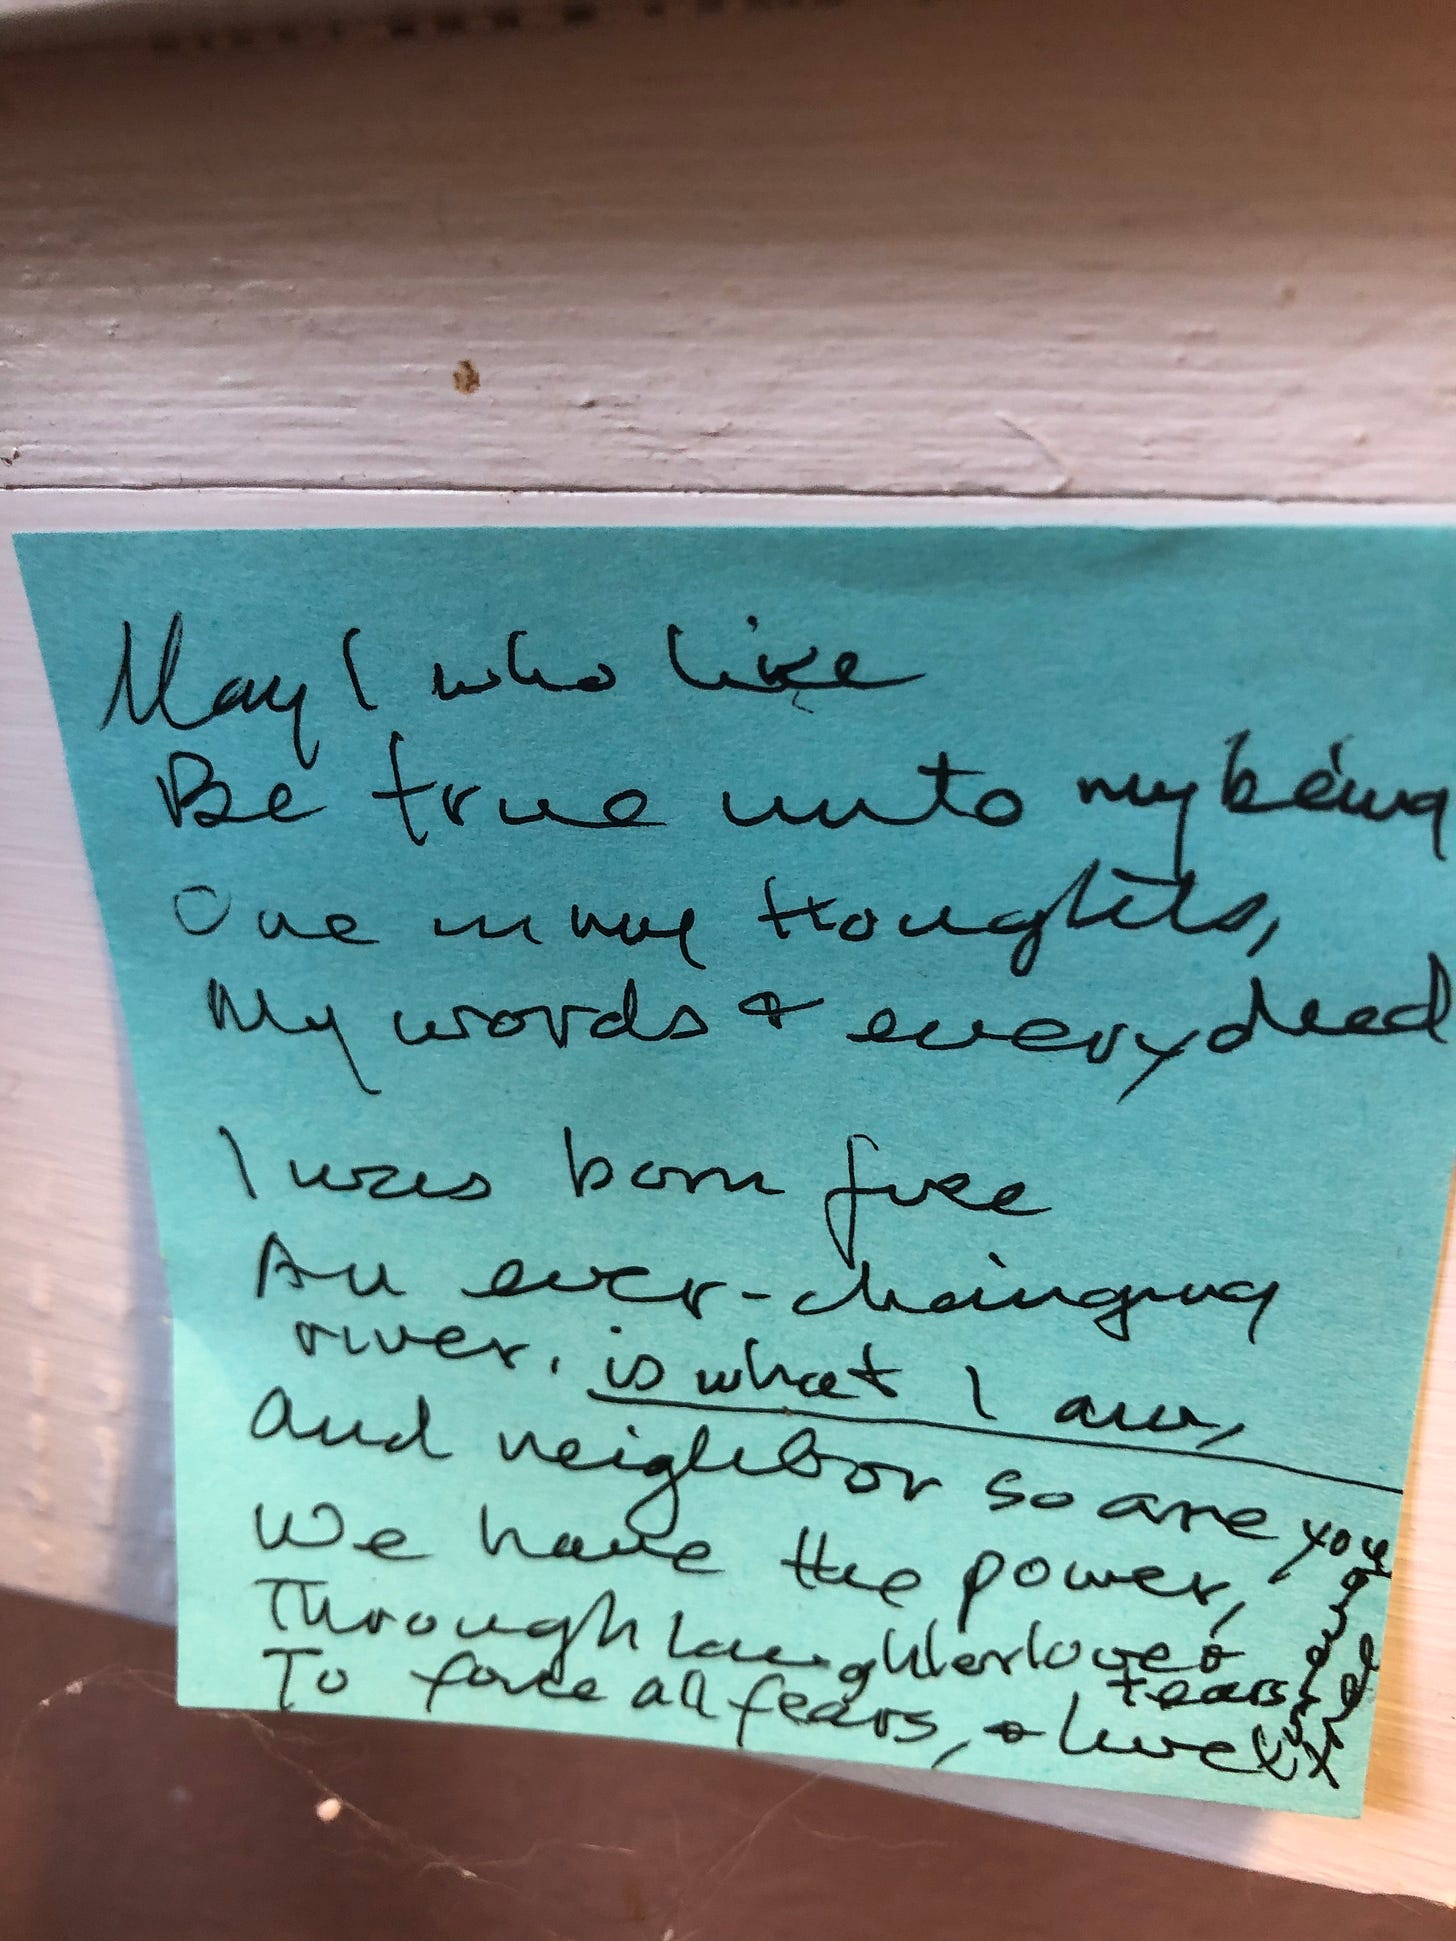 May I who live
Be true unto my being
One in my thoughts,
My words & every deed
I was born free
An ever-changing
river. is what I am,
and neighbor so are you
We have the power,
Through laughter love &
tears
To face all fears, & live